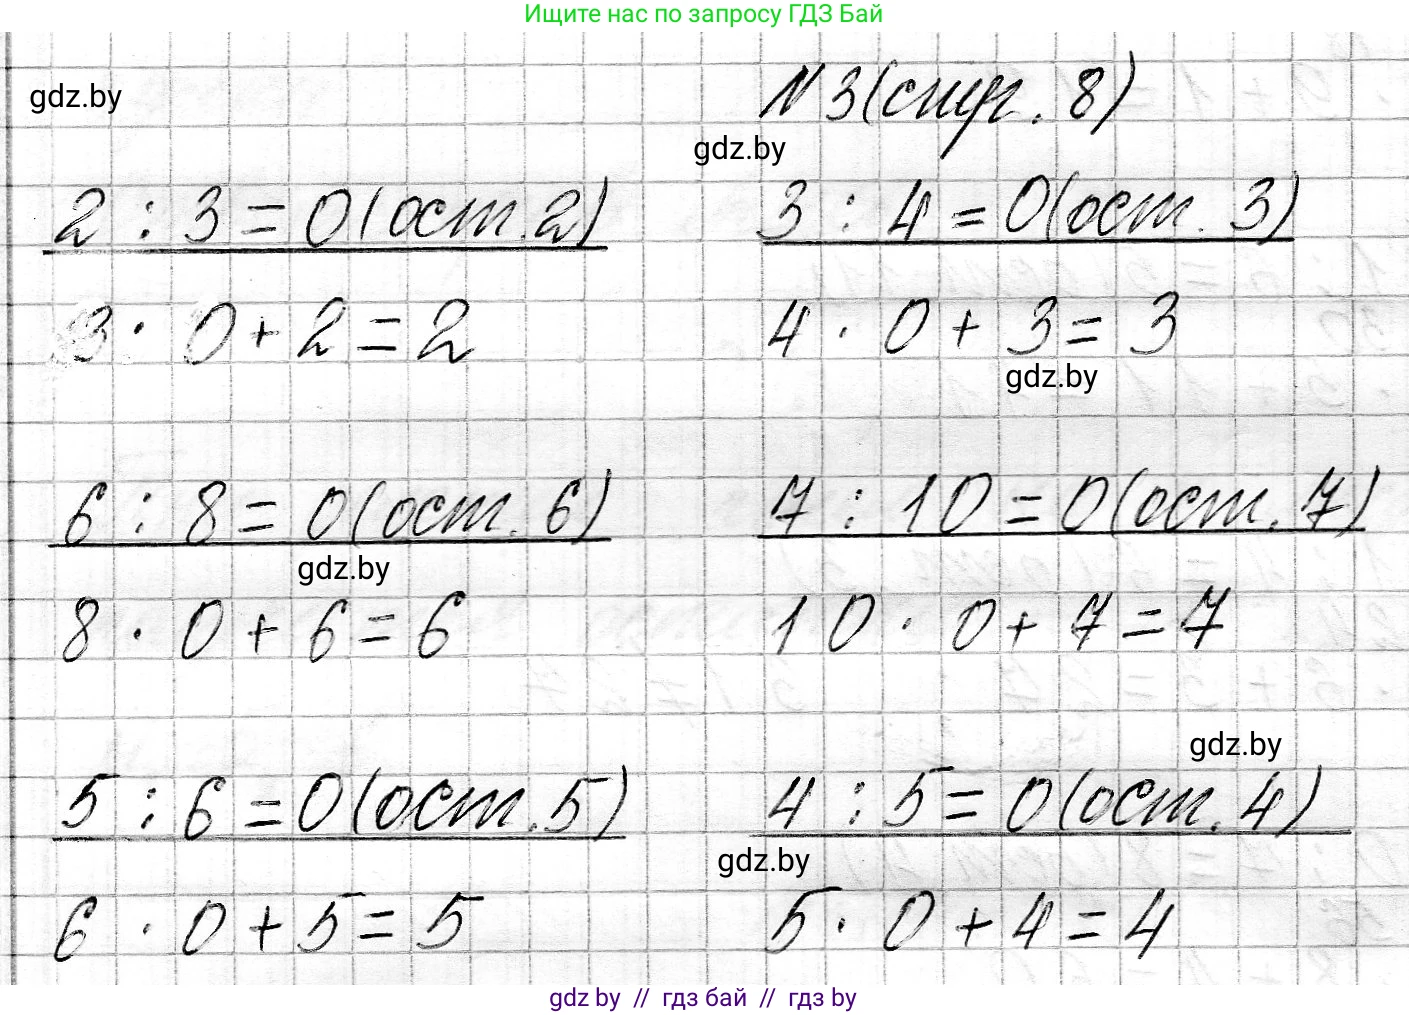 Ищите нас по запросу ГДЗ Бай
gdz.by
№3(стр. 8)
gdz.by
2 : 3 = 0(ост.2)
3 : 4 = 0(ост. 3)
3 · 0 + 2 = 2
4 · 0 + 3 = 3
gdz.by
6 : 8 = 0(ост. 6)
7 : 10 = 0(ост. 7)
gdz.by
8 · 0 + 6 = 6
10 · 0 + 7 = 7
gdz.by
5 : 6 = 0(ост.5)
4 : 5 = 0(ост. 4)
gdz.by
6 · 0 + 5 = 5
5 · 0 + 4 = 4
gdz by // гдз бай // гдз by